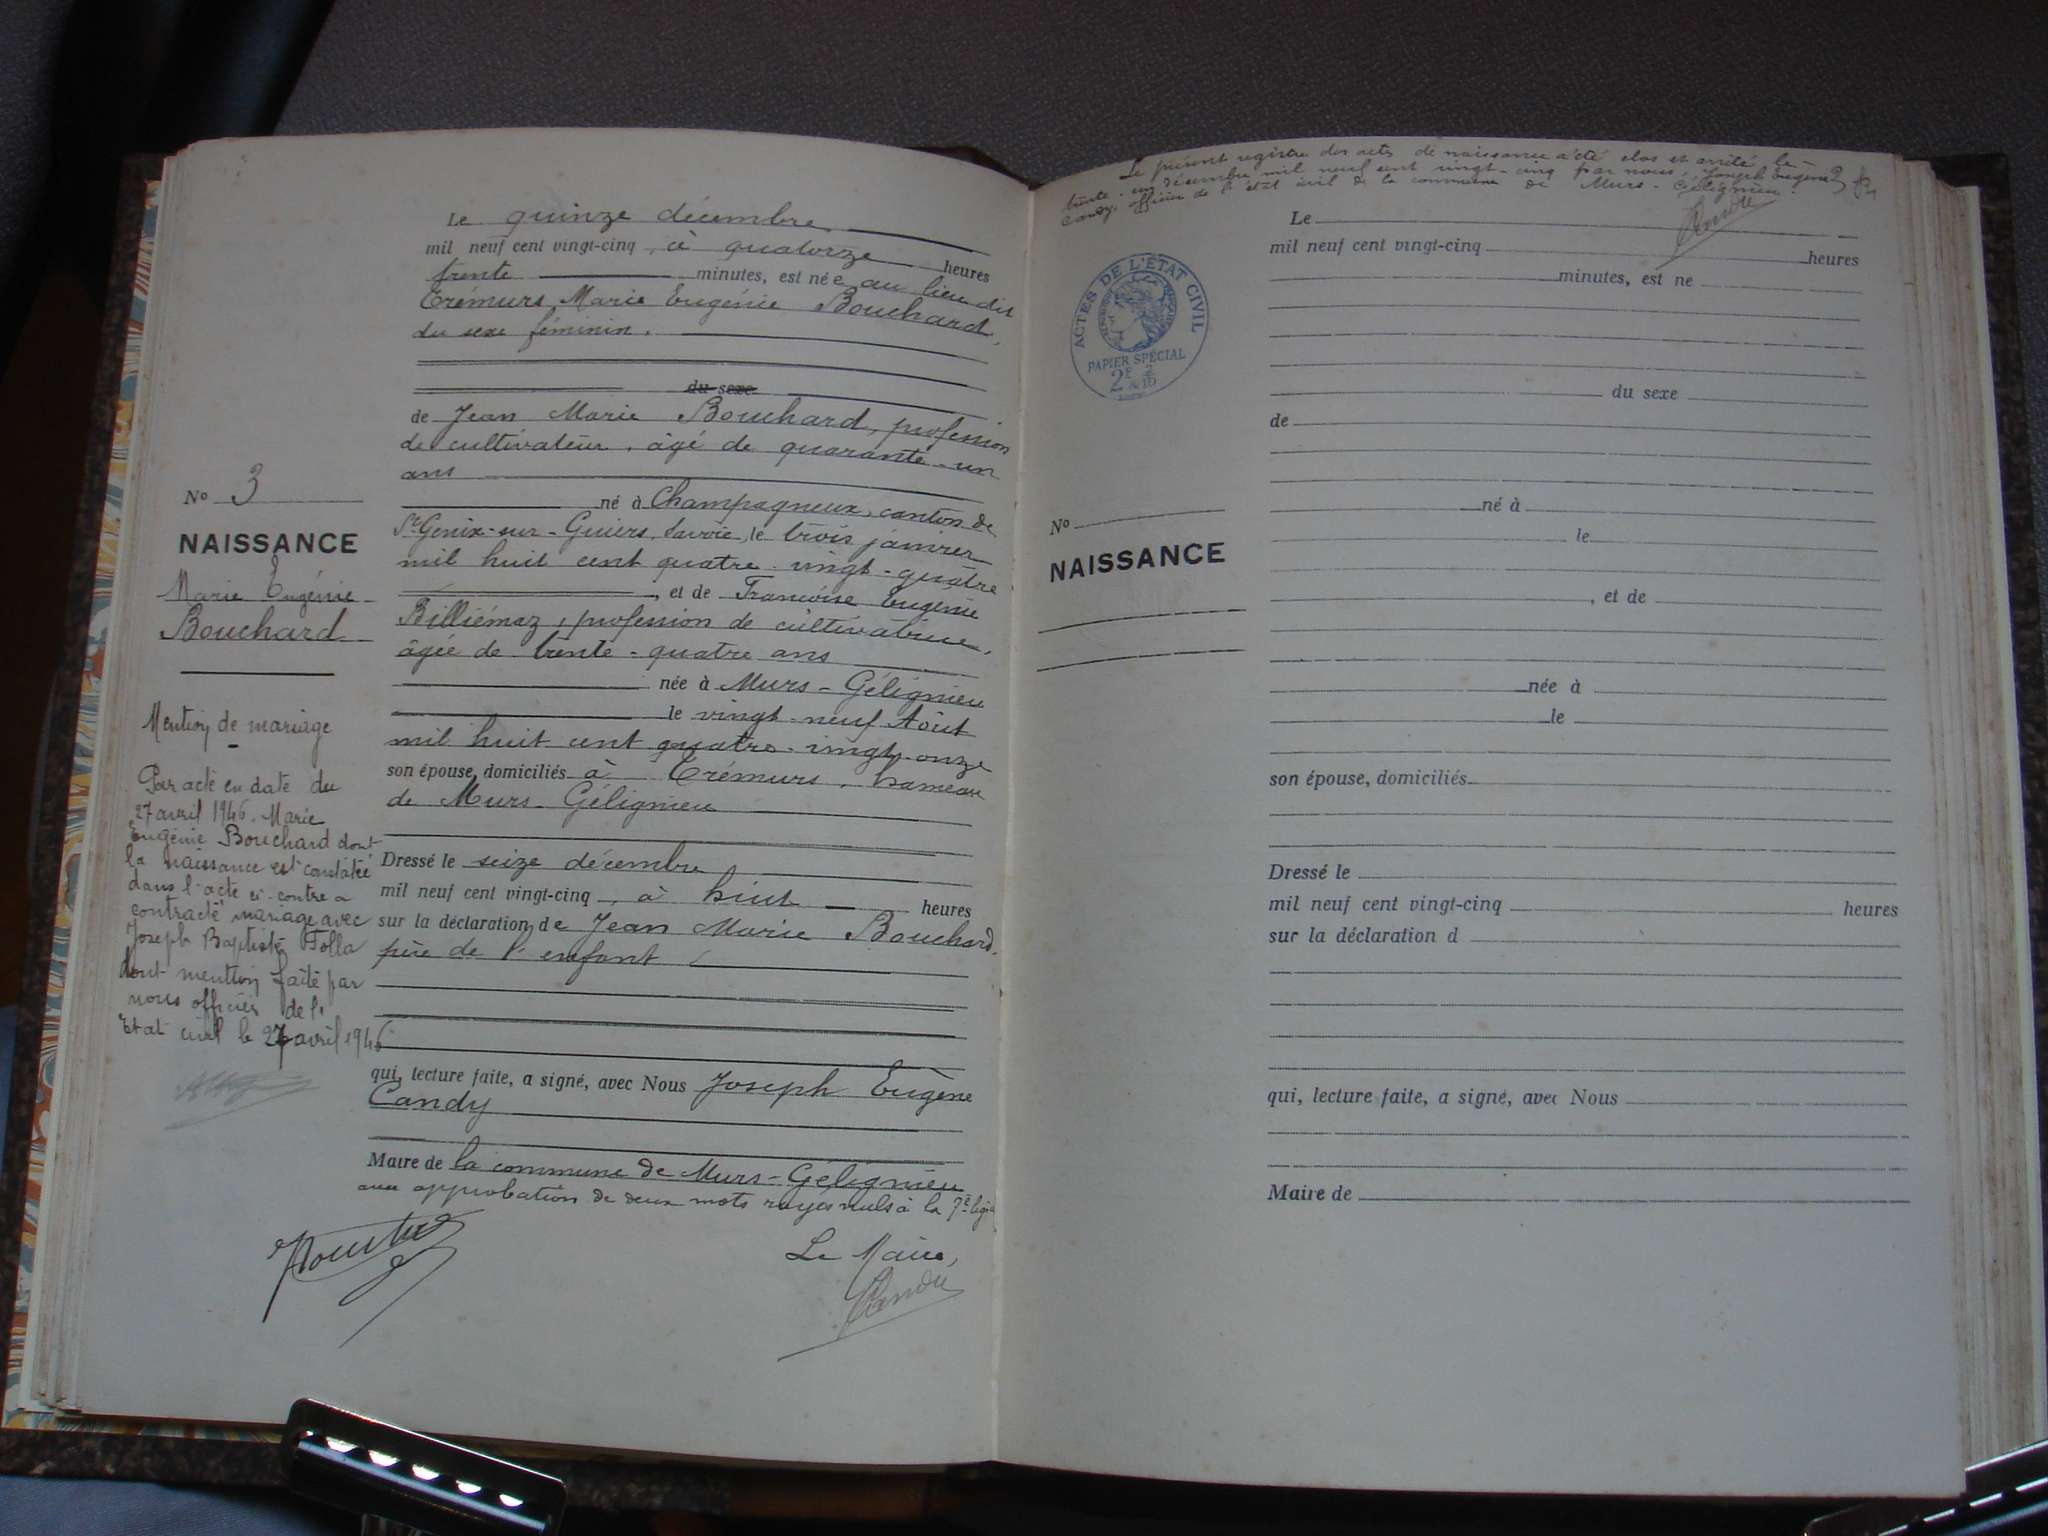 Le quinze décembre
mil neuf cent vingt-cinq, à quatorze heures
trente minutes, est née au lieu dit
Trémurs, Marie Eugénie Bouchard,
du sexe féminin.
du sexe
de Jean Marie Bouchard, profession
de cultivateur, âgé de quarante-un
ans
né à Champagneux, canton de
St Genix-sur-Guiers, Savoie, le trois janvier
mil huit cent quatre-vingt-quatre
, et de Françoise Eugénie
Billiémaz, profession de cultivatrice,
âgée de trente-quatre ans
née à Murs-Gélignieu
le vingt-neuf Août
mil huit cent quatre-vingt-onze
son épouse, domiciliés à Trémurs, hameau
de Murs-Gélignieu
Dressé le seize décembre
mil neuf cent vingt-cinq, à huit heures
sur la déclaration de Jean Marie Bouchard,
père de l'enfant
qui, lecture faite, a signé, avec Nous Joseph Eugène
Candy
Maire de la commune de Murs-Gélignieu
avec approbation de deux mots rayés nuls à la 7e ligne
Le Maire,
No 3
NAISSANCE
Marie Eugénie
Bouchard
Mention de mariage
Par acte en date du
27 avril 1946. Marie
Eugénie Bouchard dont
la naissance est constatée
dans l'acte ci-contre a
contracté mariage avec
Joseph Baptiste Tolla
dont mention faite par
nous officier de l'
Etat civil le 27 avril 1946
Le présent registre des actes de naissance a été clos et arrêté le
trente-un décembre mil neuf cent vingt-cinq par nous, Joseph Eugène
Candy, officier de l'état civil de la commune de Murs-Gélignieu.
ACTES DE L'ÉTAT CIVIL
PAPIER SPÉCIAL
No
NAISSANCE
Le
mil neuf cent vingt-cinq heures
minutes, est ne
du sexe
de
né à
le
, et de
née à
le
son épouse, domiciliés
Dressé le
mil neuf cent vingt-cinq heures
sur la déclaration d
qui, lecture faite, a signé, avec Nous
Maire de